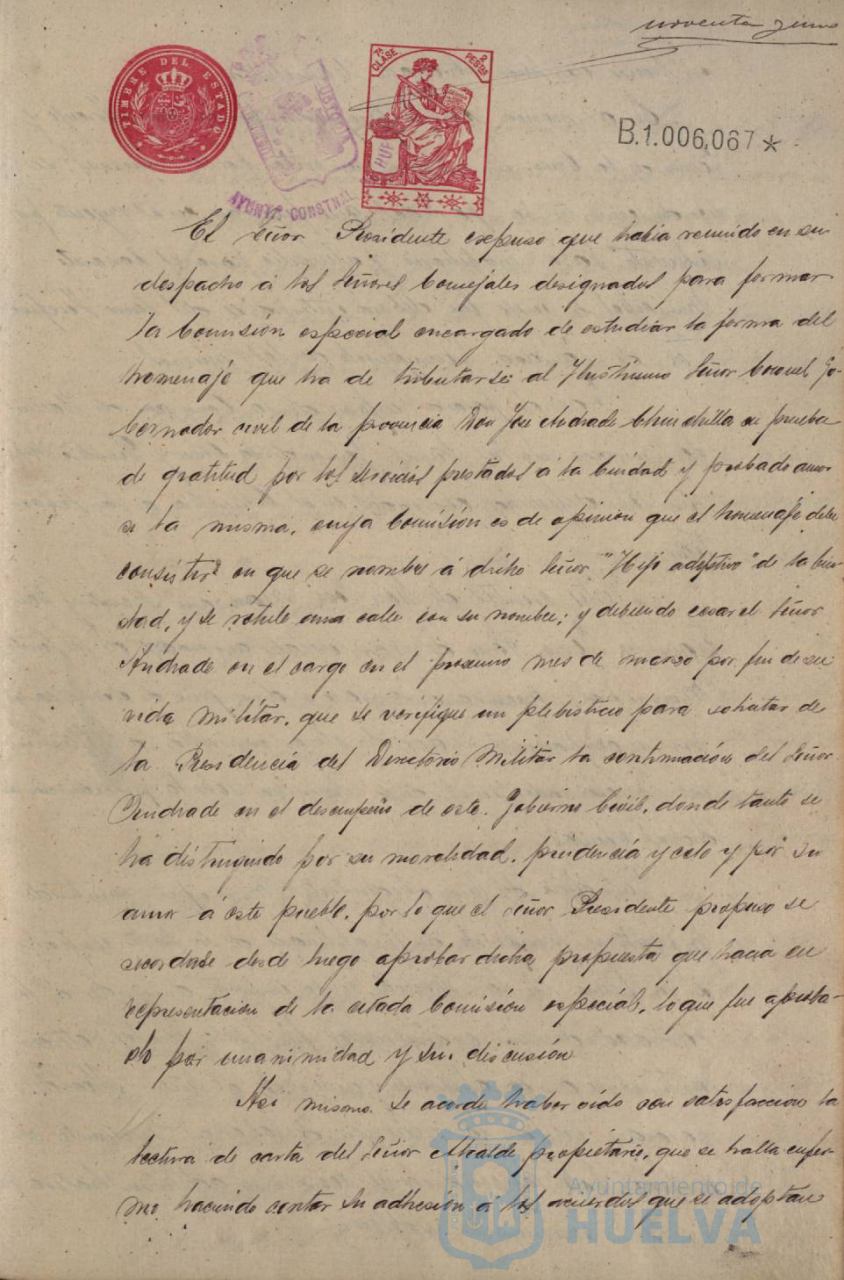 noventa y uno
TIMBRE DEL ESTADO
7ª CLASE 2 PESETAS
AYUNTº CONSTNAL
B.1.006,067 *
El Señor Presidente expuso que habia reunido en su
despacho á los Señores Concejales designados para formar
la Comisión especial encargado de estudiar la forma del
homenaje que ha de tributarse al Ilustrisimo Señor Coronel Go-
bernador civil de la provincia Don Jose Andrade Chinchilla en prueba
de gratitud por los servicios prestados á la Ciudad y probado amor
a la misma, cuya Comisión es de opinion que el homenaje debe
consistir en que se nombre á dicho Señor "Hijo adoptivo" de la Ciu-
dad, y se rotule una calle con su nombre; y debiendo cesar el Señor
Andrade en el cargo en el proximo mes de marzo por fin de su
vida militar, que se verifique un plebiscito para solicitar de
la Presidencia del Directorio Militar la continuación del Señor
Andrade en el desempeño de este Gobierno Civil, donde tanto se
ha distinguido por su moralidad, prudencia y celo y por su
amor á este pueblo, por lo que el Señor Presidente propuso se
acordase desde luego aprobar dicha propuesta que hacia en
representación de la citada Comisión especial, lo que fue aproba-
do por unanimidad y sin discusión
Asi mismo se acordó haber oido con satisfaccion la
lectura de carta del Señor Alcalde propietario, que se halla enfer-
mo haciendo contar su adhesión á los acuerdos que se adoptan
Ayuntamiento de
HUELVA